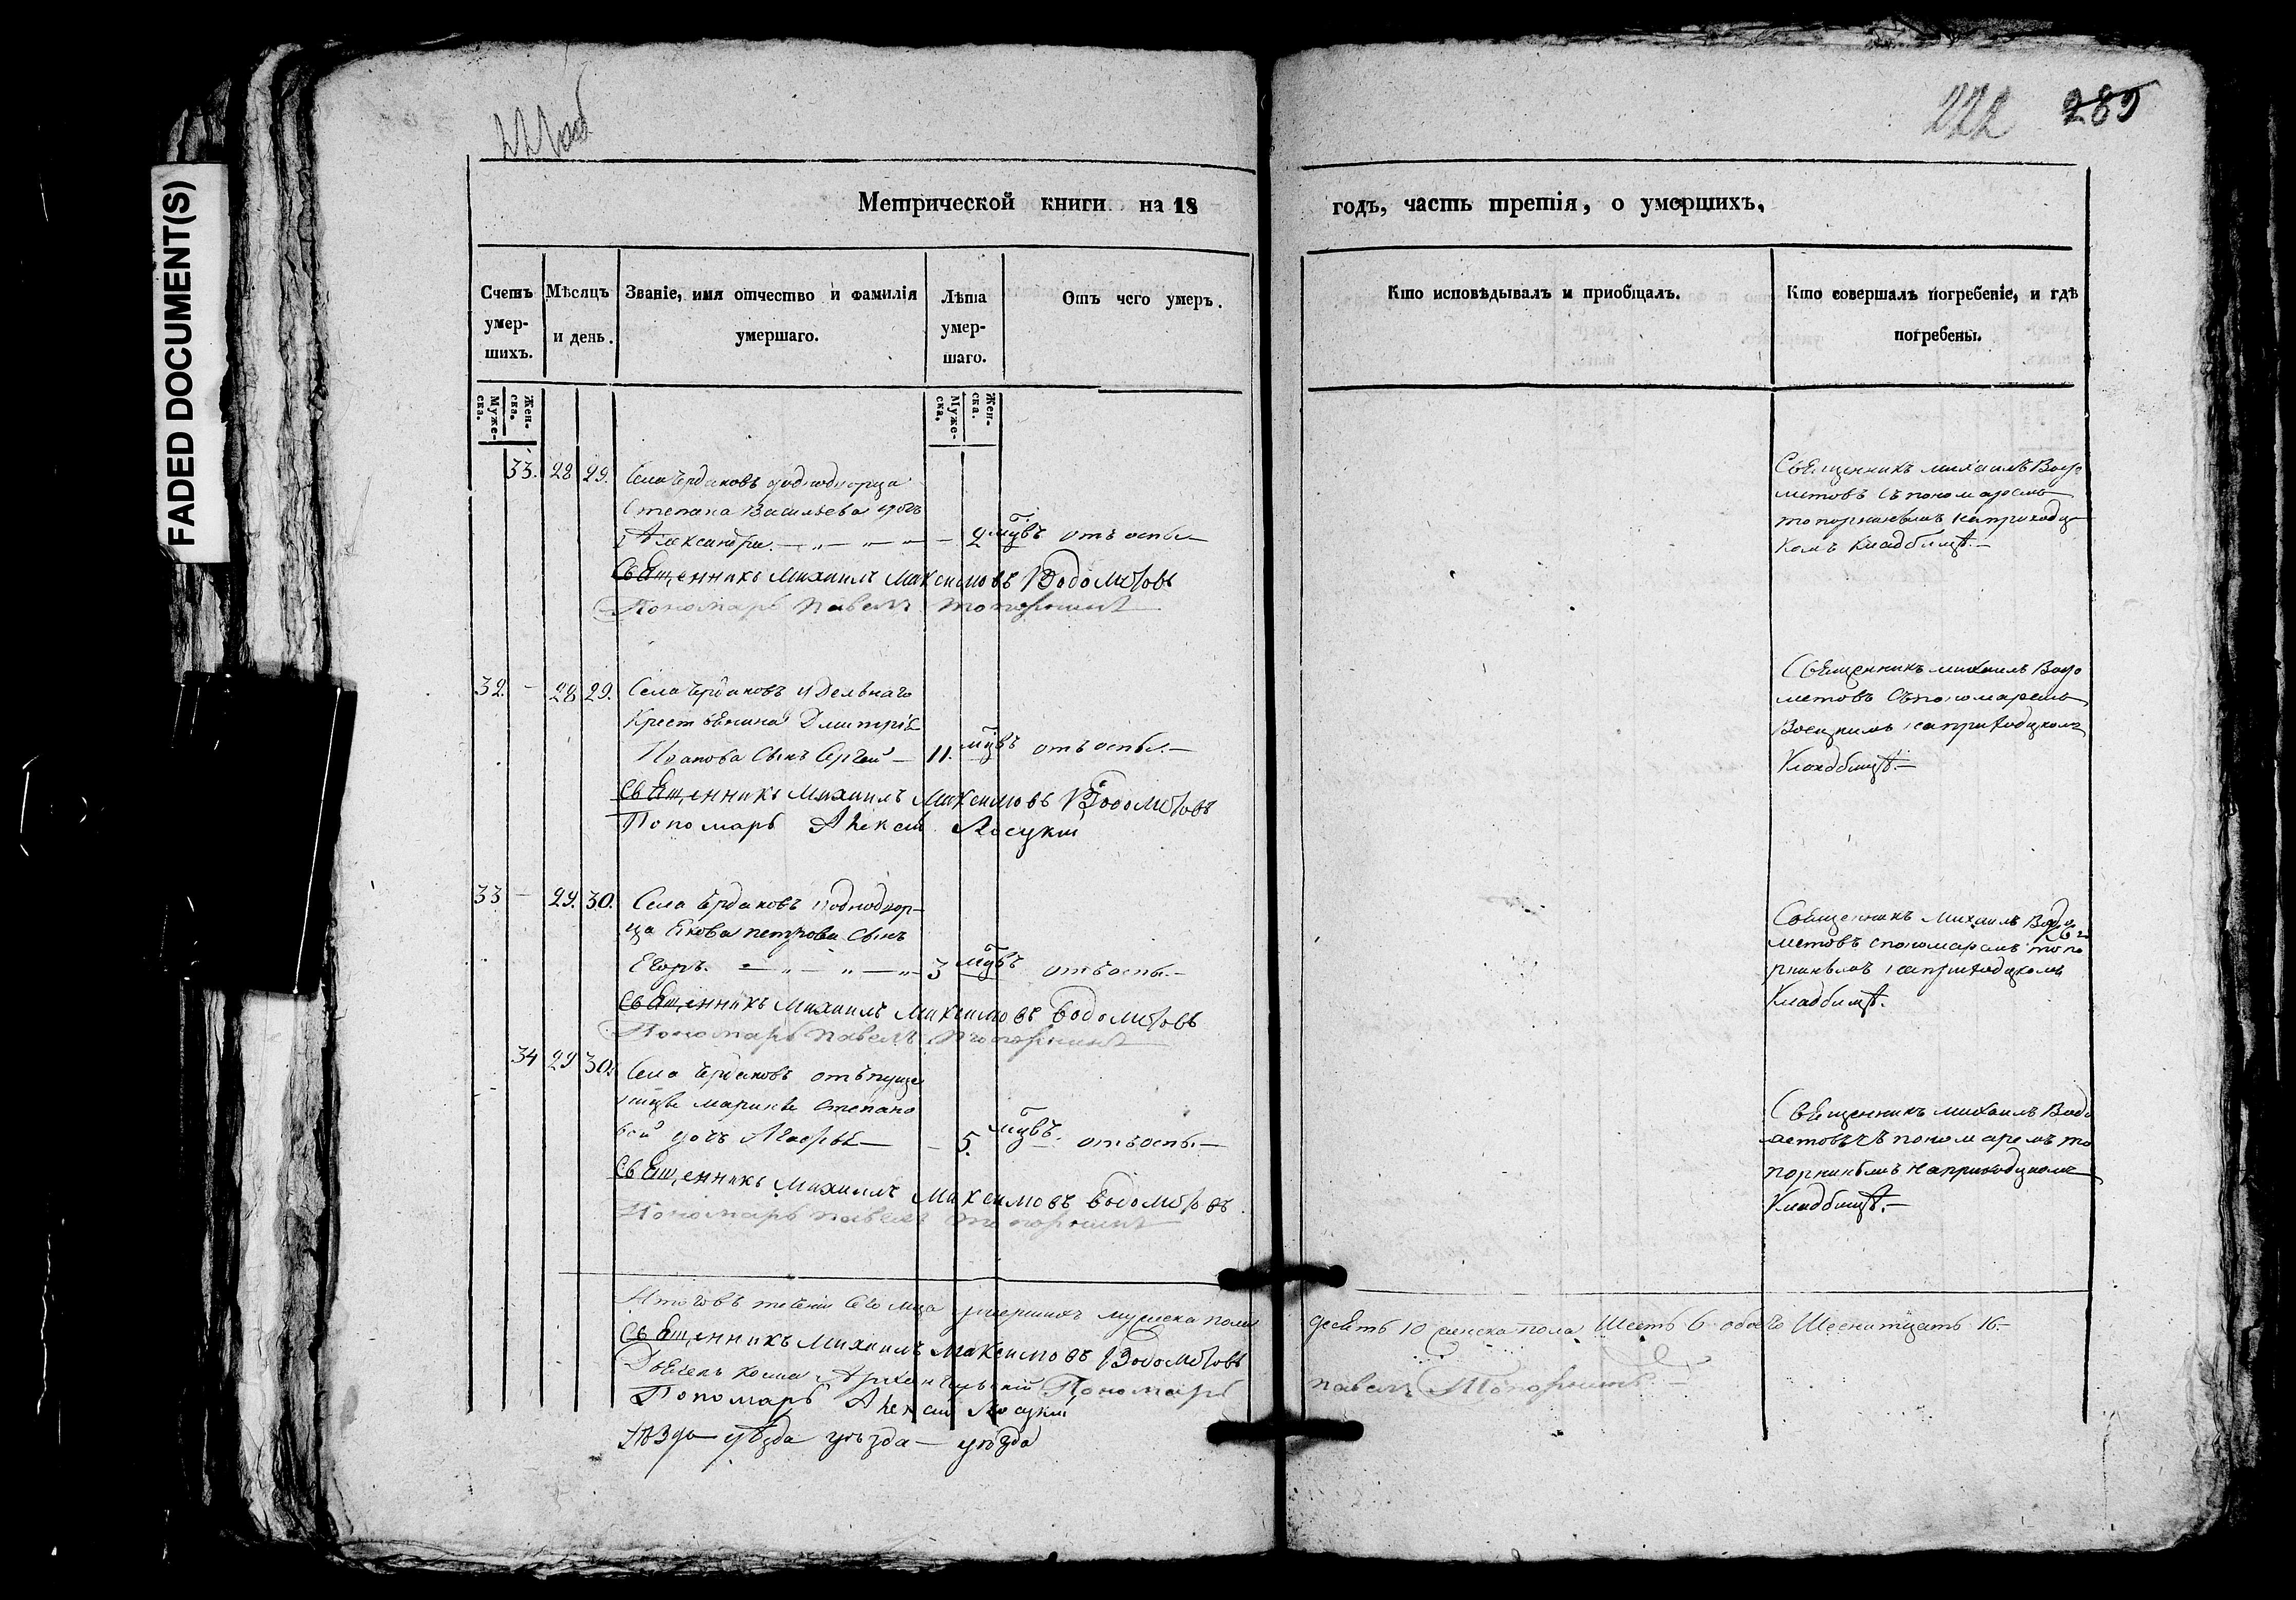 FADED DOCUMENT(S)
222 289
Метрической книги на 18 годъ, часть третія, о умершихъ.
Счетъ умер-шихъ.
Мѣсяцъ и день.
Званіе, имя отчество и фамилія умершаго.
Лѣта умер-шаго.
Отъ чего умеръ.
Кто исповѣдывалъ и приобщалъ.
Кто совершалъ погребеніе, и гдѣ погребены.
Муже-ска. Жен-ска.
Муже-ска. Жен-ска.
33. 28 29. Села Чердаковъ однодворца
Степана Васильева дочь
Александра. — 2 отъ оспы —
Священникъ Михаилъ Максимовъ Водометовъ
Пономарь Павелъ Топорнинъ
Священникъ Михаилъ Водо
метовъ съ пономаремъ
топорнинымъ на приход
комъ кладбищѣ. —
32. — 28 29. Села Чердаковъ удельнаго
крестьянина Дмитрія
Иванова сынъ Сергей — 11. отъ оспы. —
Священникъ Михаилъ Максимовъ Водометовъ
Пономарь Алексей
Священникъ Михаилъ Водо
метовъ съ пономаремъ
на приходскомъ
кладбищѣ. —
33 — 29. 30. Села Чердаковъ однодвор
ца Якова петрова сынъ
Егоръ. — 3 отъ оспы. —
Священникъ Михаилъ Максимовъ Водометовъ
Пономарь Павелъ Топорнинъ
Священникъ Михаилъ Водо
метовъ с пономаремъ топо
рнинымъ на приходскомъ
кладбищѣ.
34 29 30. Села Чердаковъ отъпуще
Марины Степано
вой дочь — 5. отъ оспы. —
Священникъ Михаилъ Максимовъ Водометовъ
Пономарь Павелъ Топорнинъ
Священникъ Михаилъ Водо
метовъ съ пономаремъ то
порнинымъ на приходскомъ
кладбищѣ. —
Итого въ теченіи сего мца умершихъ мужеска пола десять 10 женска пола шесть 6 обоего шеснатцать 16. —
Священникъ Михаилъ Максимовъ Водометовъ
Архангельскій Пономарь Павелъ Топорнинъ. —
Пономарь Алексей
уѣзда уѣзда — уѣзда